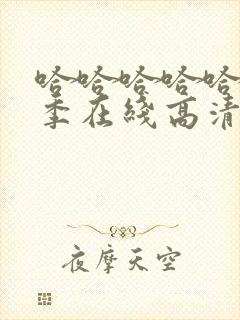 哈哈哈哈哈
季在线高清
夜摩天空